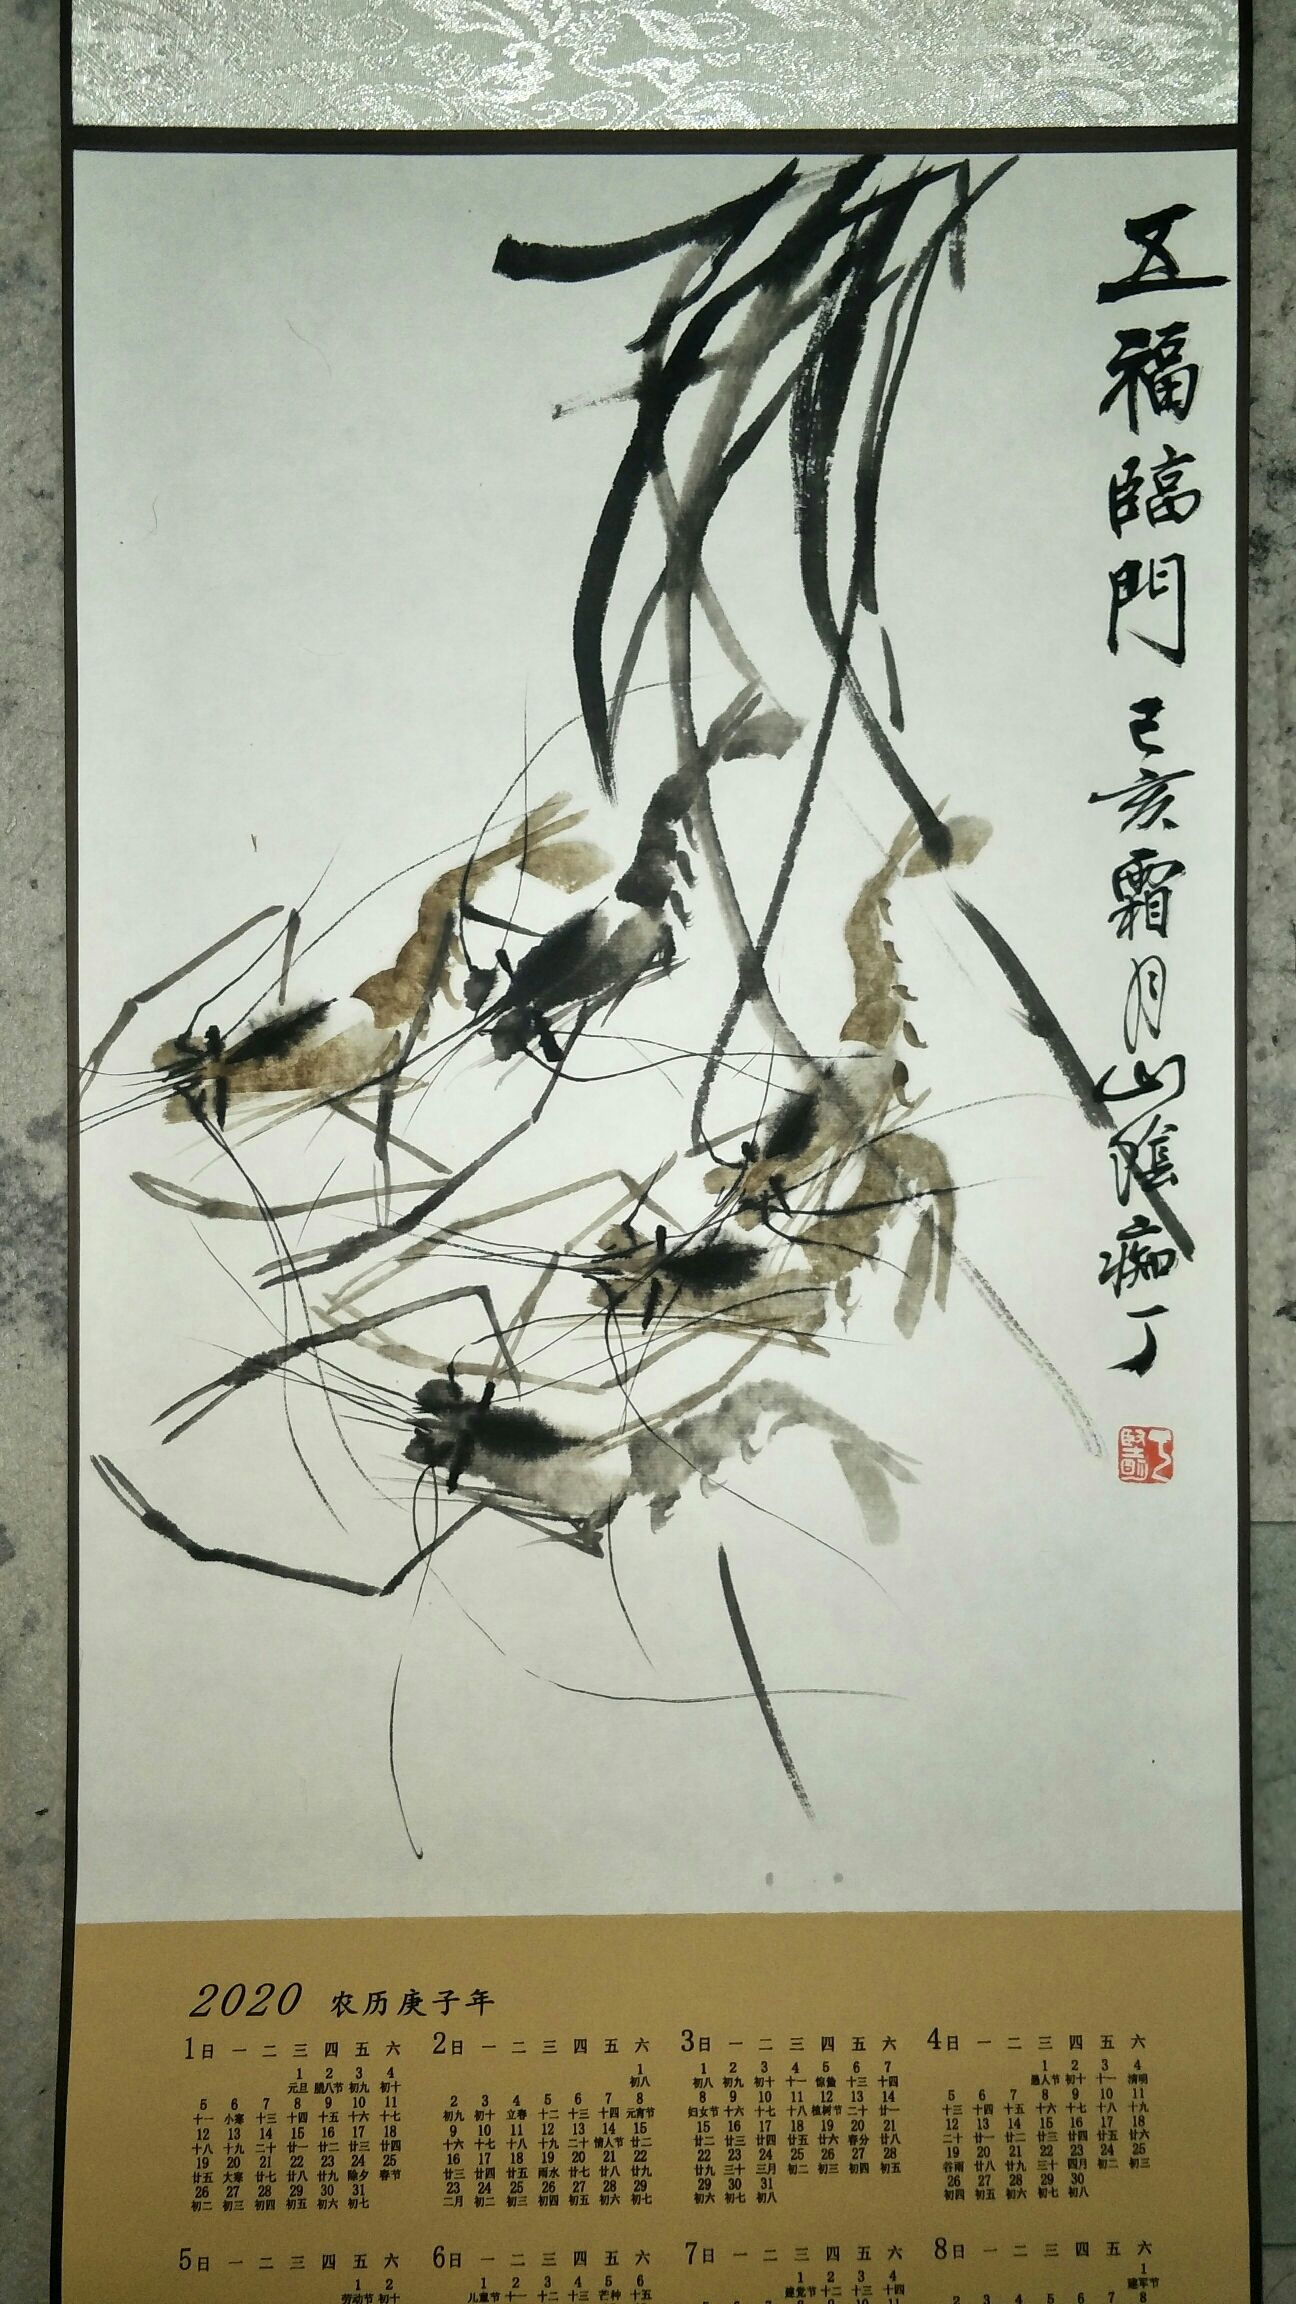 五福臨門 己亥霜月山陰痴丁
2020 农历庚子年
1 日 一 二 三 四 五 六
1 2 3 4
元旦 腊八节 初九 初十
5 6 7 8 9 10 11
十一 小寒 十三 十四 十五 十六 十七
12 13 14 15 16 17 18
十八 十九 二十 廿一 廿二 廿三 廿四
19 20 21 22 23 24 25
廿五 大寒 廿七 廿八 廿九 除夕 春节
26 27 28 29 30 31
初二 初三 初四 初五 初六 初七
2 日 一 二 三 四 五 六
1
初八
2 3 4 5 6 7 8
初九 初十 立春 十二 十三 十四 元宵节
9 10 11 12 13 14 15
十六 十七 十八 十九 二十 情人节 廿二
16 17 18 19 20 21 22
廿三 廿四 廿五 雨水 廿七 廿八 廿九
23 24 25 26 27 28 29
二月 初二 初三 初四 初五 初六 初七
3 日 一 二 三 四 五 六
1 2 3 4 5 6 7
初八 初九 初十 十一 惊蛰 十三 十四
8 9 10 11 12 13 14
妇女节 十六 十七 十八 植树节 二十 廿一
15 16 17 18 19 20 21
廿二 廿三 廿四 廿五 廿六 春分 廿八
22 23 24 25 26 27 28
廿九 三十 三月 初二 初三 初四 初五
29 30 31
初六 初七 初八
4 日 一 二 三 四 五 六
1 2 3 4
愚人节 初十 十一 清明
5 6 7 8 9 10 11
十三 十四 十五 十六 十七 十八 十九
12 13 14 15 16 17 18
二十 廿一 廿二 廿三 廿四 廿五 廿六
19 20 21 22 23 24 25
谷雨 廿八 廿九 三十 四月 初二 初三
26 27 28 29 30
初四 初五 初六 初七 初八
5 日 一 二 三 四 五 六
1 2
劳动节 初十
6 日 一 二 三 四 五 六
1 2 3 4 5 6
儿童节 十一 十二 十三 芒种 十五
7 日 一 二 三 四 五 六
1 2 3 4
建党节 十二 十三 十四
8 日 一 二 三 四 五 六
1
建军节
2 3 4 5 6 7 8